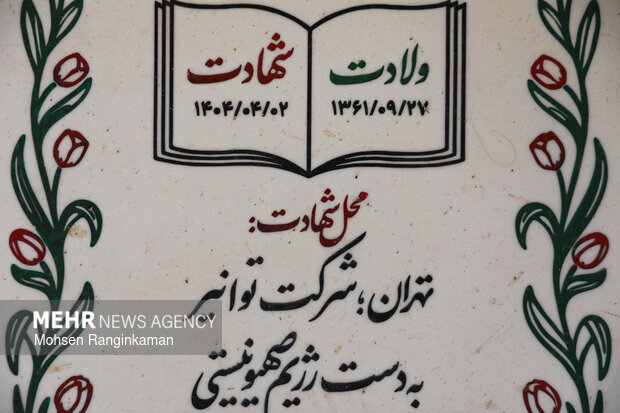 ولادت شهادت
۱۳۶۱/۰۹/۲۷ ۱۴۰۴/۰۴/۰۲
محل شهادت:
تهران؛ شرکت توانیر
به دست رژیم صهیونیستی
MEHR NEWS AGENCY
Mohsen Ranginkaman